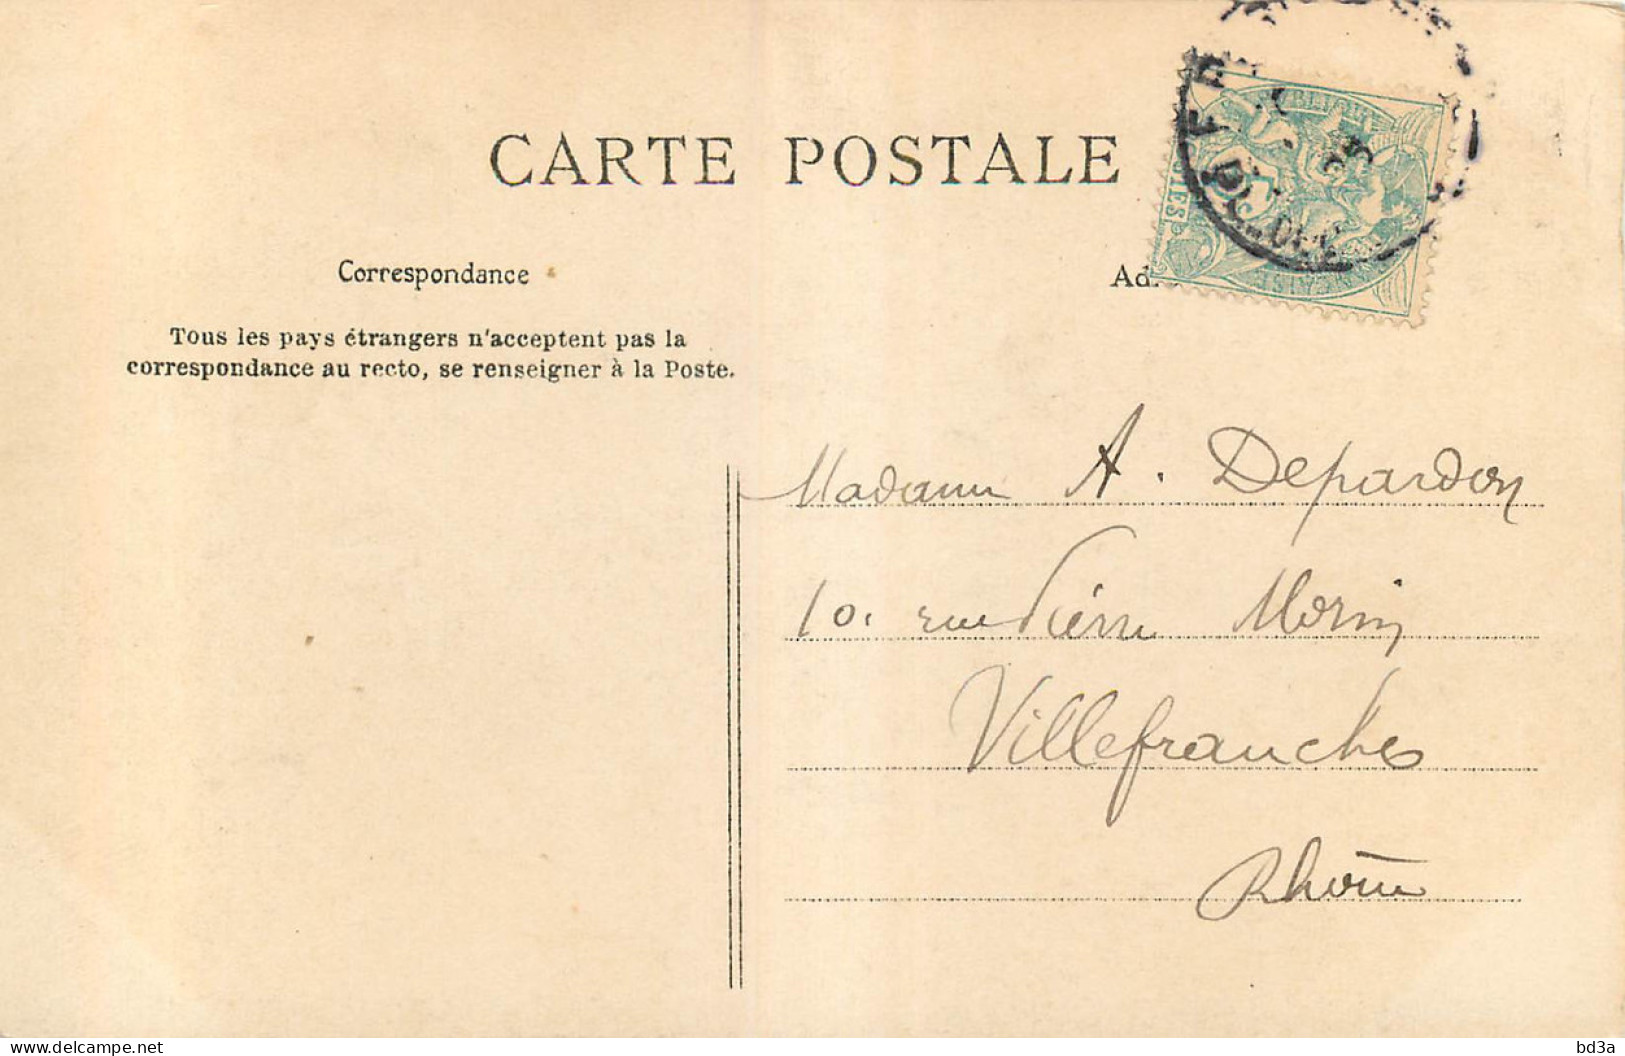 CARTE POSTALE
Correspondance
Tous les pays étrangers n'acceptent pas la
correspondance au recto, se renseigner à la Poste.
Madame A. Depardon
10, rue Pierre Morin
Villefranche s
Rhône
delcampe.net
bd3a